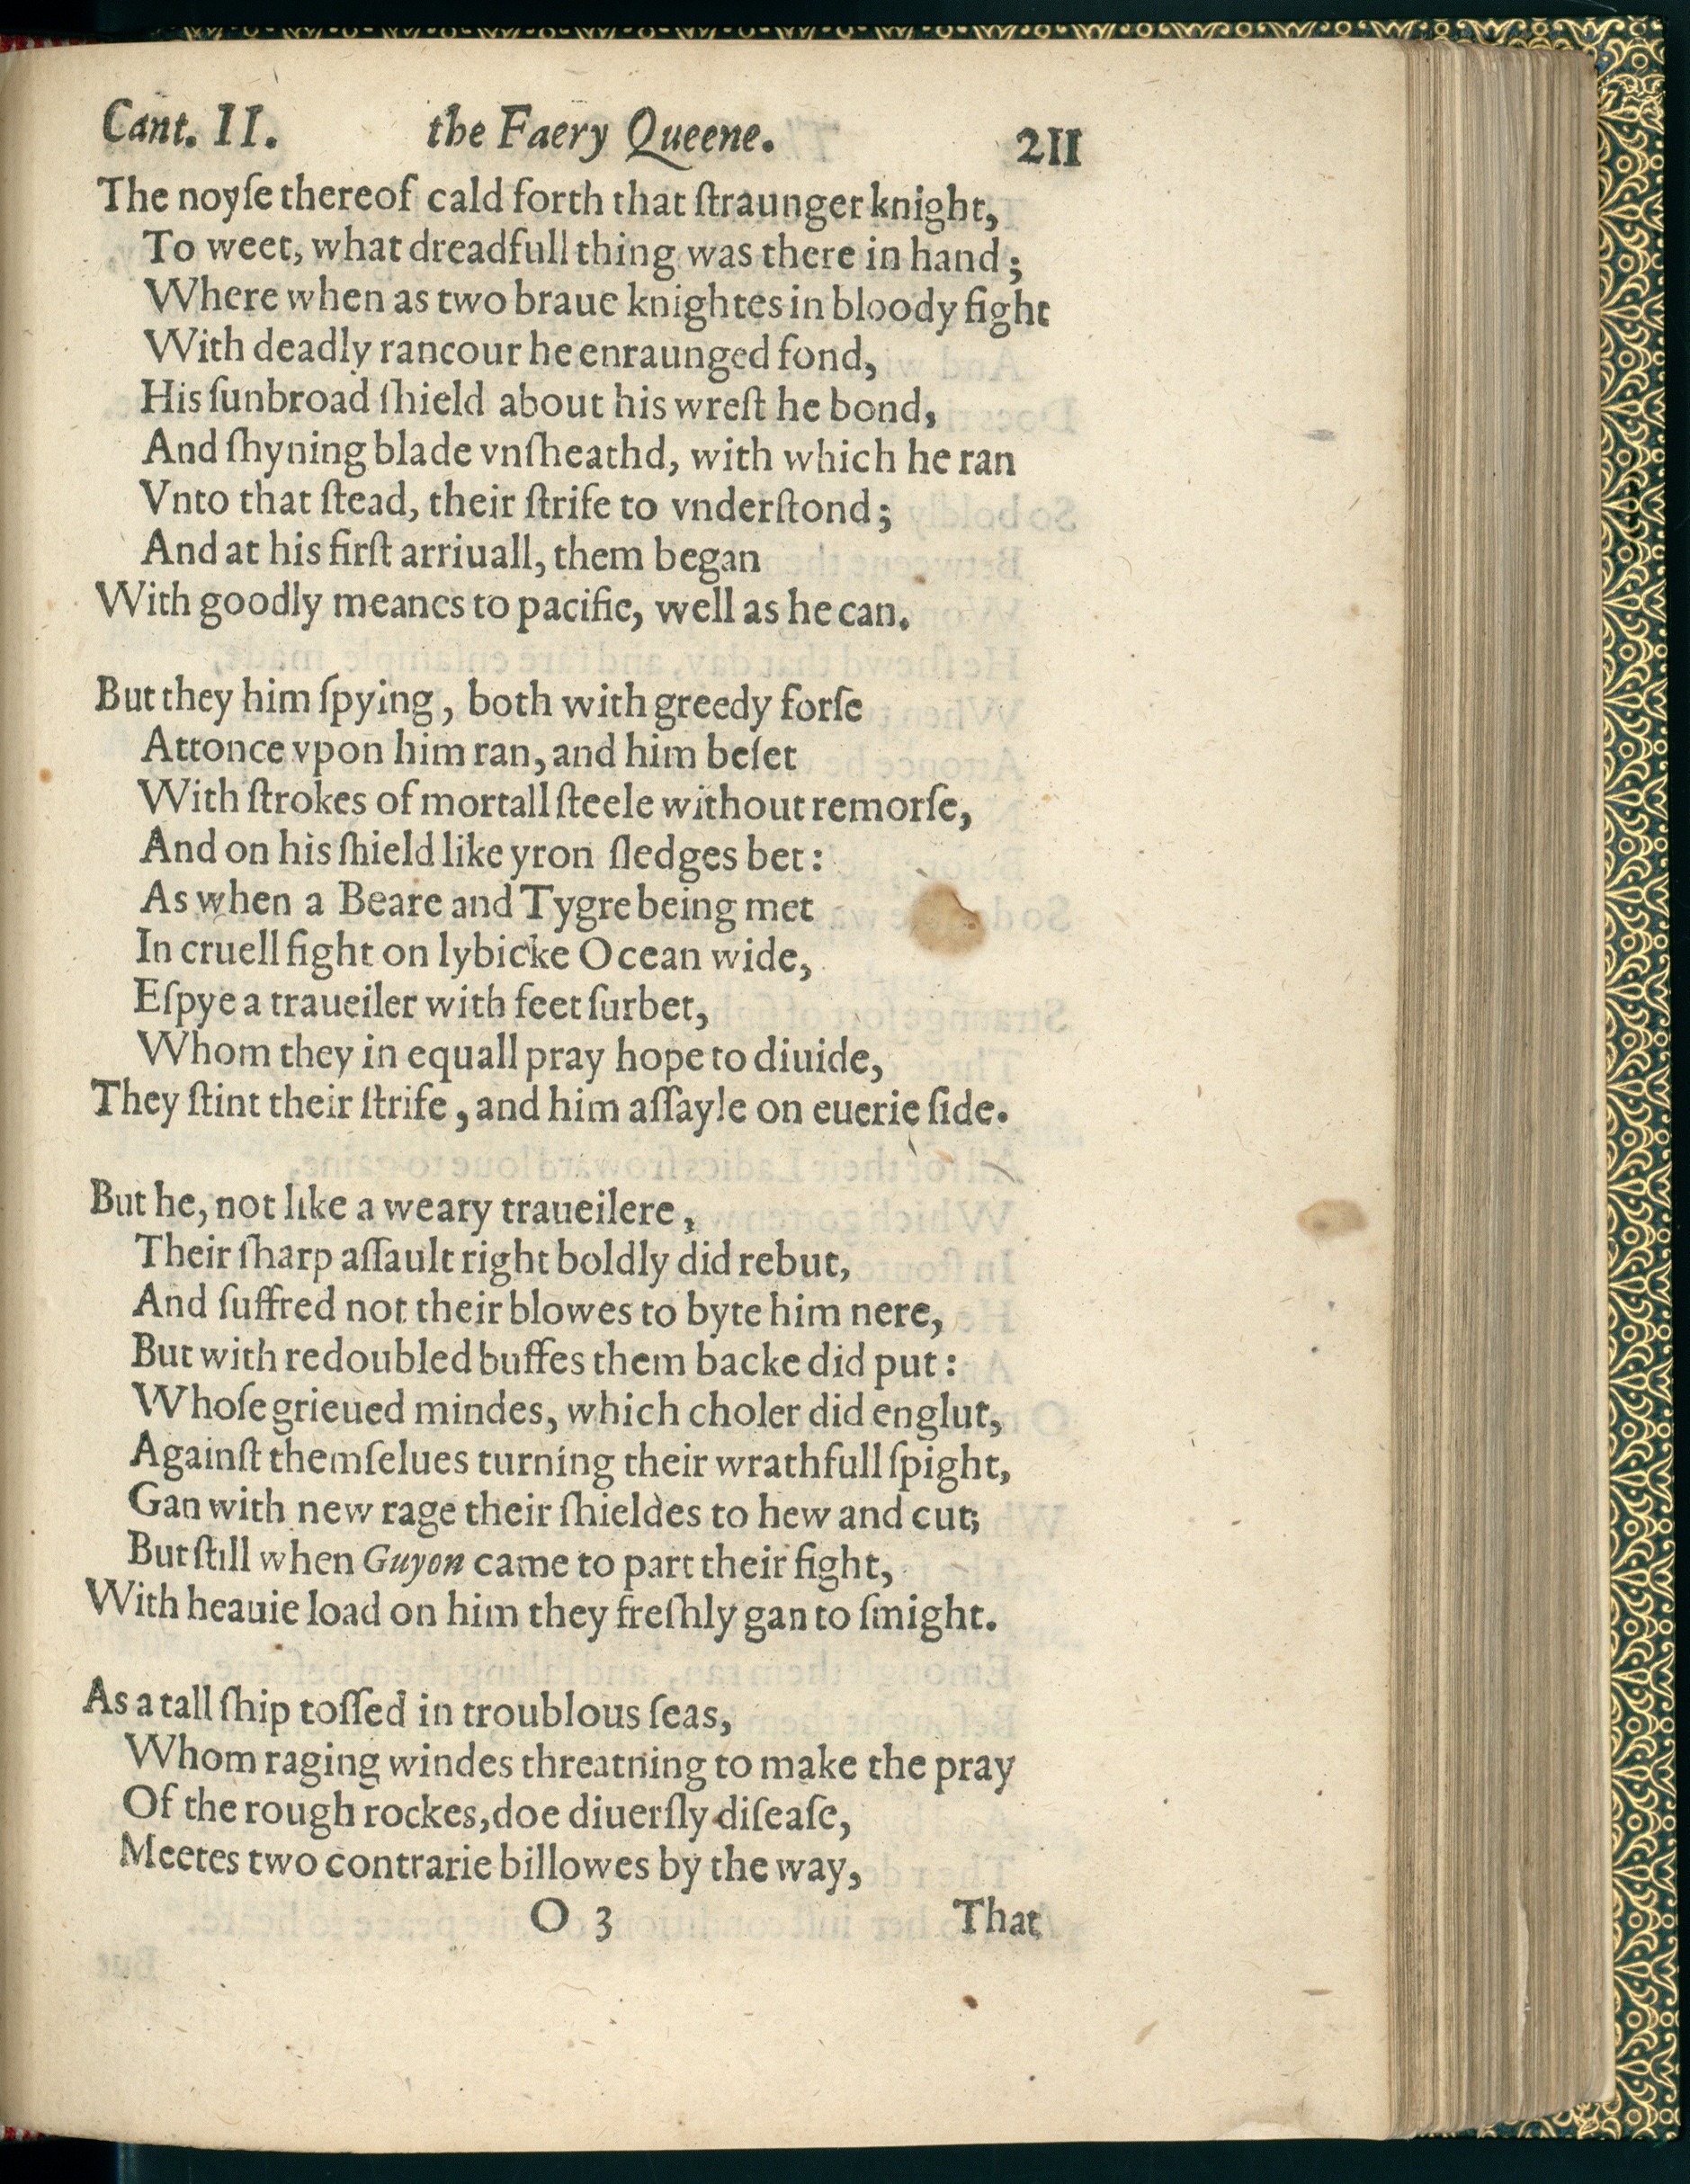 Cant. II. the Faery Queene. 211
The noyſe thereof cald forth that ſtraunger knight,
To weet, what dreadfull thing was there in hand;
Where when as two braue knightes in bloody fight
With deadly rancour he enraunged fond,
His ſunbroad ſhield about his wreſt he bond,
And ſhyning blade vnſheathd, with which he ran
Vnto that ſtead, their ſtrife to vnderſtond;
And at his firſt arriuall, them began
With goodly meanes to pacifie, well as he can.
But they him ſpying, both with greedy forſe
Attonce vpon him ran, and him beſet
With ſtrokes of mortall ſteele without remorſe,
And on his ſhield like yron ſledges bet:
As when a Beare and Tygre being met
In cruell fight on lybicke Ocean wide,
Eſpye a traueiler with feet ſurbet,
Whom they in equall pray hope to diuide,
They ſtint their ſtrife, and him aſſayle on euerie ſide.
But he, not like a weary traueilere,
Their ſharp aſſault right boldly did rebut,
And ſuffred not their blowes to byte him nere,
But with redoubled buffes them backe did put:
Whoſe grieued mindes, which choler did englut,
Againſt themſelues turning their wrathfull ſpight,
Gan with new rage their ſhieldes to hew and cut;
But ſtill when Guyon came to part their fight,
With heauie load on him they freſhly gan to ſmight.
As a tall ſhip toſſed in troublous ſeas,
Whom raging windes threatning to make the pray
Of the rough rockes, doe diuerſly diſeaſe,
Meetes two contrarie billowes by the way,
O 3 That